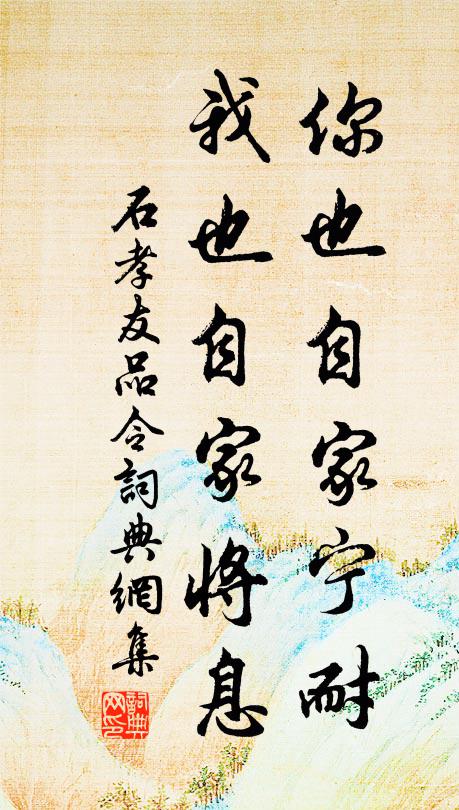 你也自家宁耐
我也自家将息
石孝友品令詞典網集
詞典
网印